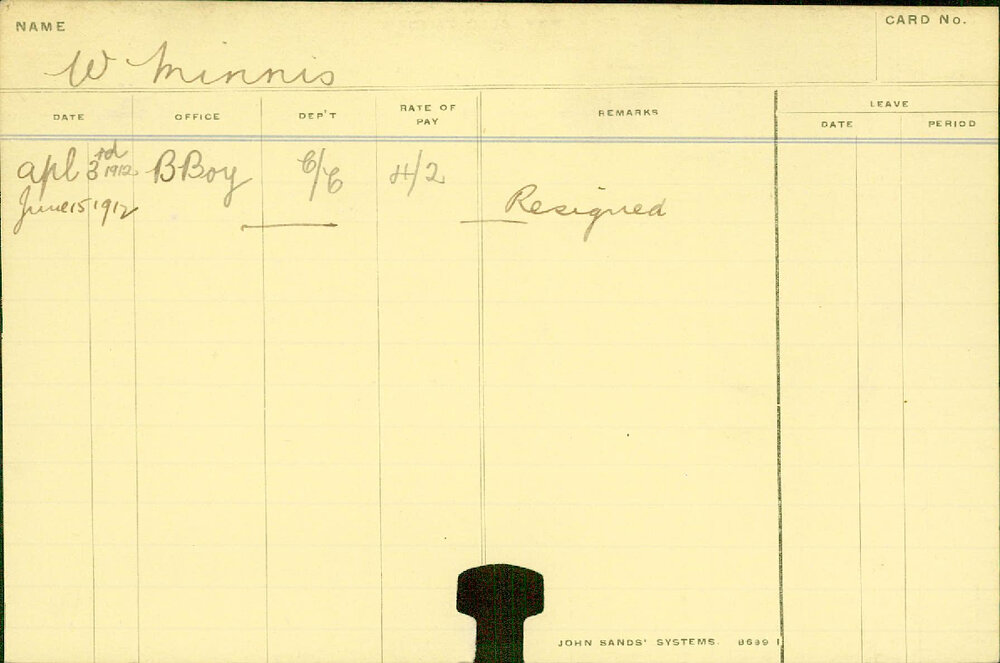 NAME
CARD No.
W Minnis
DATE OFFICE DEP'T RATE OF PAY REMARKS LEAVE
DATE PERIOD
apl 3rd 1912 BBoy C/C 4/2
June 15 1912 Resigned
JOHN SANDS' SYSTEMS. B689